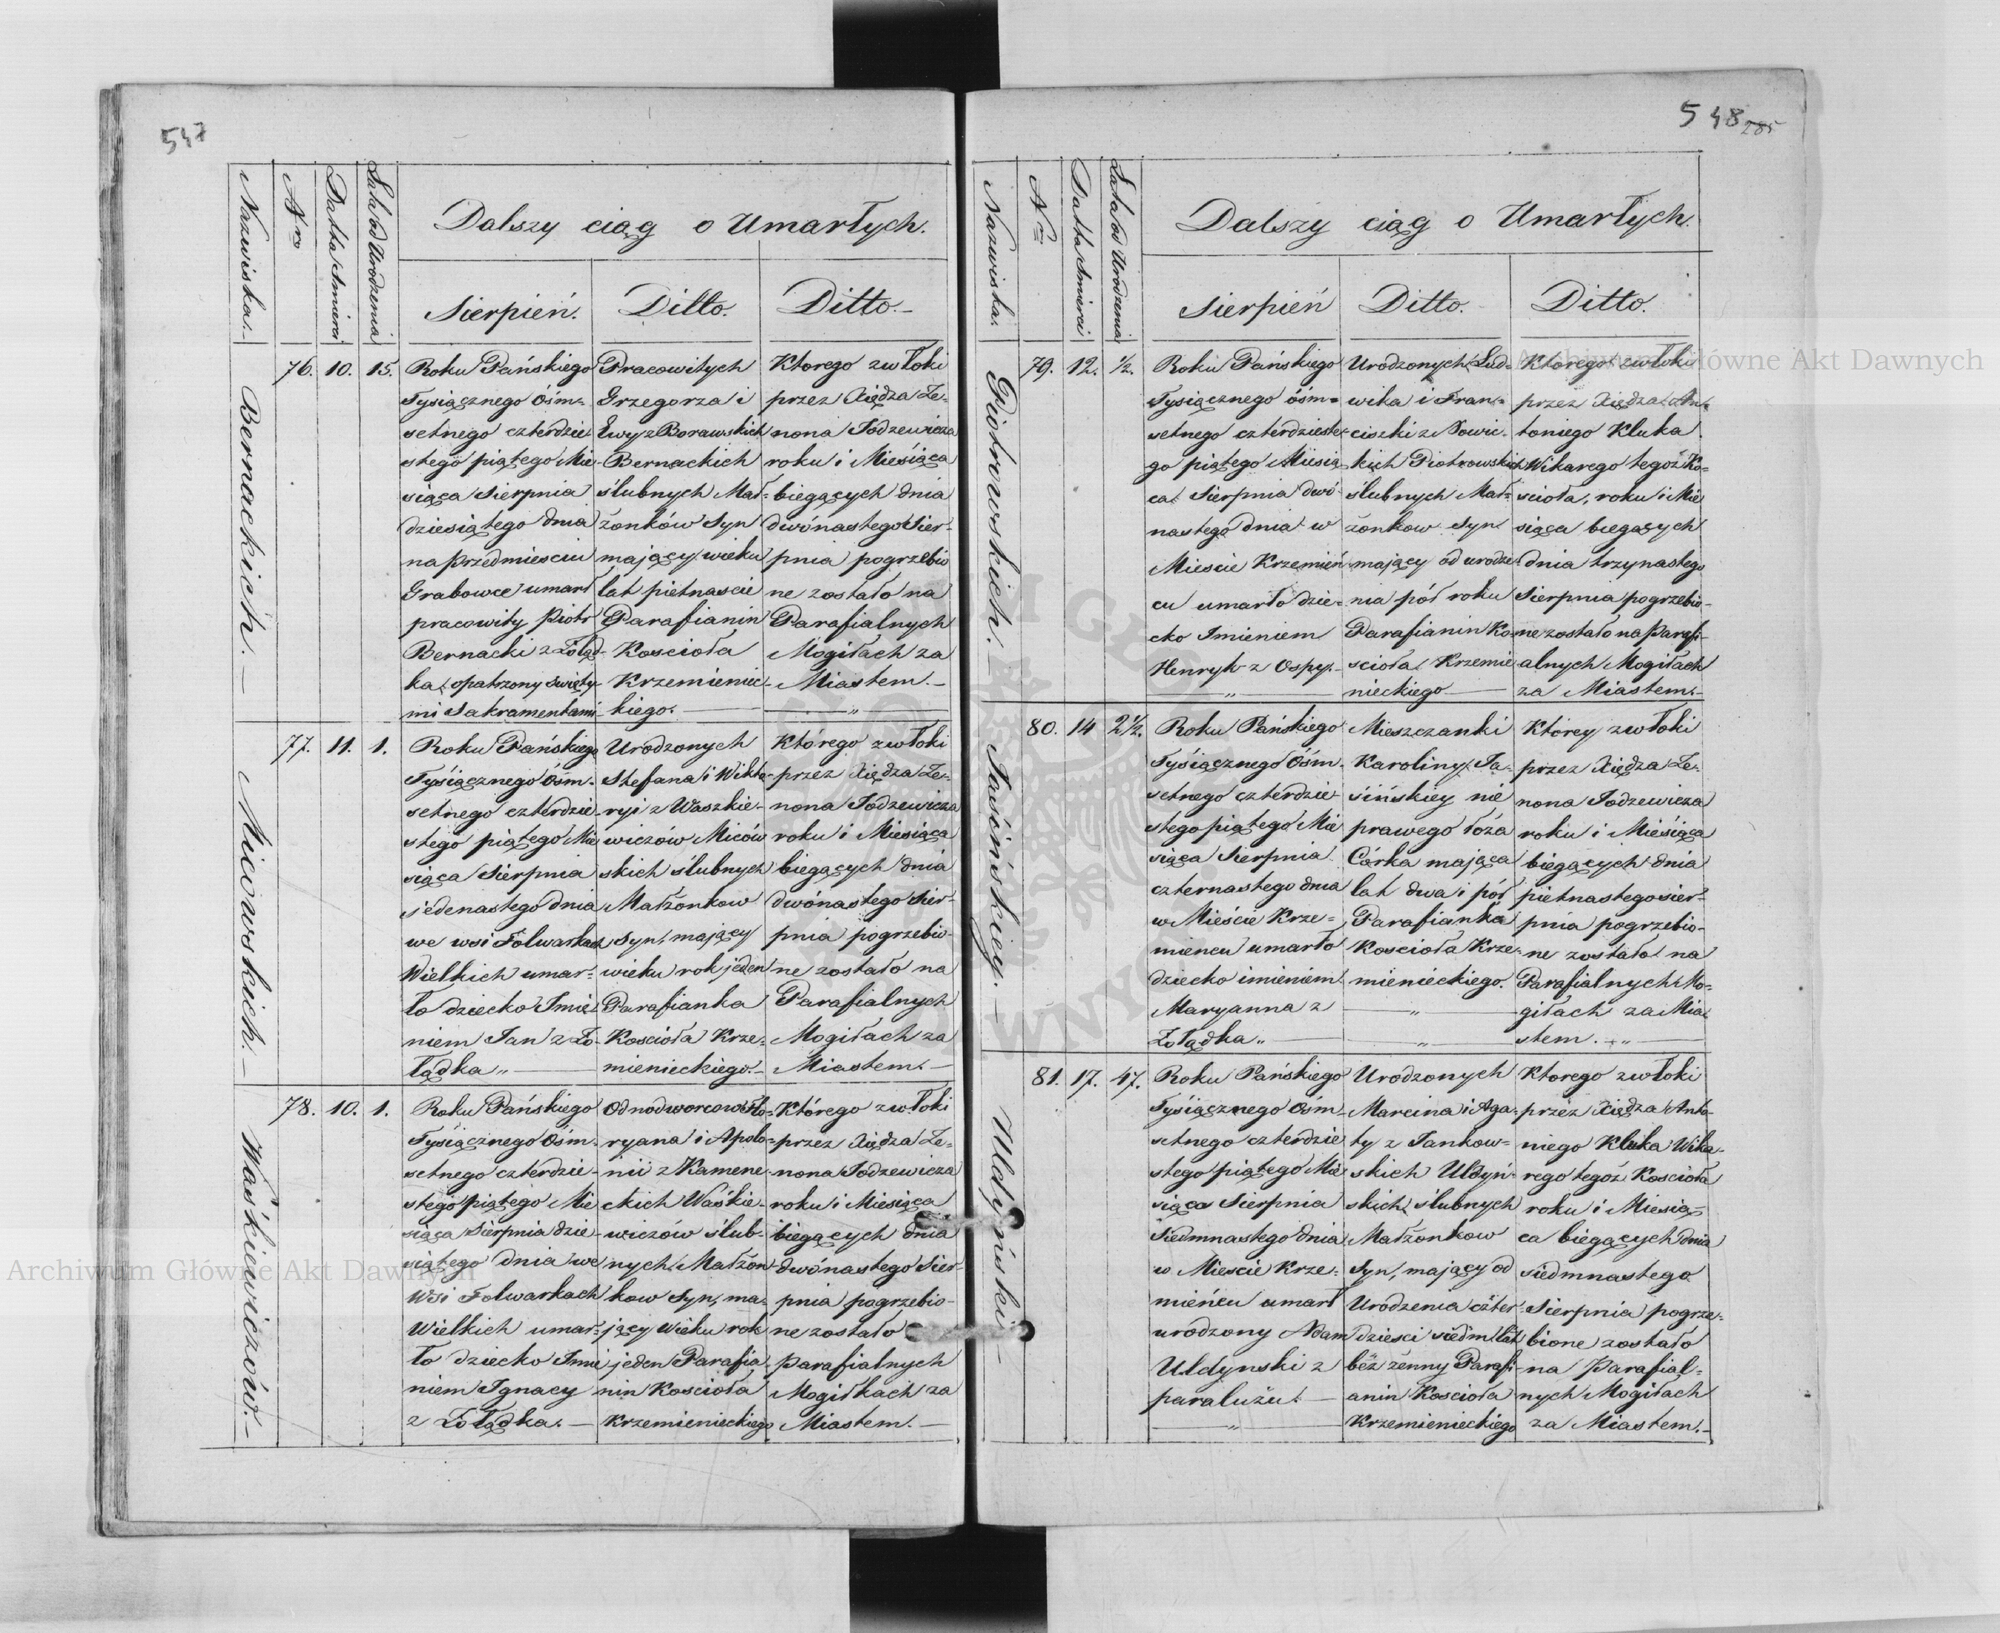 547
Nazwiska.
Nro
Datta Śmierci
Lata od Urodzenia
Dalszy ciąg o Umarłych.
Sierpień.
Ditto.
Ditto.
Bernackich.
76. 10. 15.
Roku Pańskiego
Tysiącznego Ośm-
setnego czterdzie
stego piątego Mie-
siąca Sierpnia
dziesiątego dnia
na przedmiesciu
Grabowce umarł
pracowity Piotr
Bernacki z Żołąd-
ka, opatrzony święty-
mi Sakramentami
Pracowitych
Grzegorza i
Ewy z Borawskich
Bernackich
ślubnych Mał-
żonków Syn
mający wieku
lat pietnascie
Parafianin
Kościoła
Krzemieniec-
kiego.
Ktorego zwłoki
przez Xiędza Ze-
nona Jodzewicza
roku i Miesiąca
biegących dnia
dwónastego Sier-
pnia pogrzebio
ne zostało na
Parafialnych
Mogiłach za
Miastem.
Micowskich.
77. 11. 1.
Roku Pańskiego
Tysiącznego Ośm-
setnego czterdzie-
stego piątego Mie
siąca Sierpnia
jedenastego dnia
we wsi Folwarkach
Wielkich umar-
ło dziecko Imie
niem Jan z Żo-
łądka „
Urodzonych
Stefana i Wikto-
ryi z Waszkie-
wiczów Miców
skich ślubnych
Małżonkow
Syn, mający
wieku rok jeden
Parafianka
Kościoła Krze-
mienieckiego.
Którego zwłoki
przez Xiędza Ze-
nona Jodzewicza
roku i Miesiąca
biegących dnia
dwónastego Sier-
pnia pogrzebio-
ne zostało na
Parafialnych
Mogiłach za
Miastem.
Waśkiewiczów.
78. 10. 1.
Roku Pańskiego
Tysiącznego Ośm-
setnego czterdzie-
stego piątego Mie
siąca Sierpnia dzie-
siątego dnia we
Wsi Folwarkach
Wielkich umar-
ło dziecko Imie
niem Ignacy
z Żołądka.
Odnodworcow Flo-
ryana i Apolo-
nii z Kamene-
ckich Waśkie-
wiczów ślub-
nych Małżon-
kow Syn, ma-
jący wieku rok
jeden Parafia
nin Kościoła
Krzemienieckiego
Którego zwłoki
przez Xiędza Ze-
nona Jodzewicza
roku i Miesiąca
biegących dnia
dwónastego Sier-
pnia pogrzebio-
ne zostało
parafialnych
Mogiłkach za
Miastem.
548
285
Nazwiska.
Nro
Datta Śmierci
Lata od Urodzenia
Dalszy ciąg o Umarłych.
Sierpień
Ditto.
Ditto.
Piotrowskich.
79. 12. ½.
Roku Pańskiego
Tysiącznego ośm-
setnego czterdzieste-
go piątego Miesią
ca Sierpnia dwó-
nastego dnia w
Mieście Krzemień
cu umarło dzie-
cko Imieniem
Henryk z Ospy.
„
Urodzonych Lud-
wika i Fran-
ciszki z
kich Piotrowskich
ślubnych Mał-
żonkow Syn
mający od urodze
nia pół roku
Parafianin Ko
ścioła Krzemie
nieckiego
Ktorego zwłoki
przez Xiędza An-
toniego Kluka
Wikarego tegoż Ko-
ścioła, roku i Mie
siąca biegących
dnia trzynastego
Sierpnia pogrzebio-
ne zostało na Parafi-
alnych Mogiłach
za Miastem.
Jasińskiey.
80. 14 2½.
Roku Pańskiego
Tysiącznego Ośm-
setnego czterdzie
stego piątego Mie
siąca Sierpnia
czternastego dnia
w Mieście Krze-
mieńcu umarło
dziecko imieniem
Maryanna z
Żołądka „
Mieszczanki
Karoliny Ja-
sińskiey nie
prawego łoża
Córka mająca
lat dwa i pół
Parafianka
Kościoła Krze-
mienieckiego.
„
„
Którey zwłoki
przez Xiędza Ze-
nona Jodzewicza
roku i Miesiąca
biegących dnia
pietnastego sier-
pnia pogrzebio-
ne zostało na
Parafialnych Mo-
giłach za Mia
stem. „
Uldyński.
81. 17. 47.
Roku Pańskiego
Tysiącznego Ośm
setnego czterdzie
stego piątego Mie
siąca Sierpnia
Siedmnastego dnia
w Mieście Krze-
mieńcu umarł
urodzony Adam
Uldynski z
paralużu.
„
Urodzonych
Marcina i Aga-
ty z Jankow-
skich Uldyń-
skich, ślubnych
Małżonkow
Syn, mający od
Urodzenia czter-
dzieści siedm lat
bezżenny Parafi-
anin Kościoła
Krzemienieckiego
Ktorego zwłoki
przez Xiędza Anto-
niego Kluka Wika-
rego tegoż Kościoła
roku i Miesią-
ca biegących dnia
siedmnastego
Sierpnia pogrze-
bione zostało
na Parafial-
nych Mogiłach
za Miastem.
Archiwum Główne Akt Dawnych
Archiwum Główne Akt Dawnych